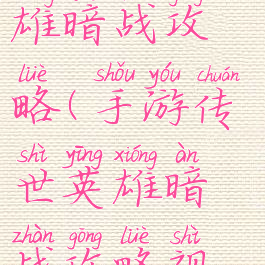 雄暗战攻
lüè shǒu yóu chuán
略(手游传
shì yīng xióng àn
世英雄暗
zhàn gōng lüè shì
战攻略视